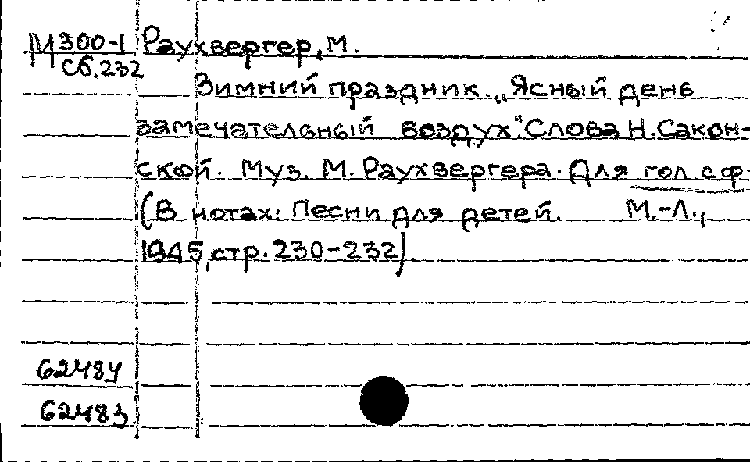 М 300-1 Раухвергер, М.
Сб. 232
Зимний праздник. „Ясный день
замечательный воздух". Слова Н. Сакон-
ской. Муз. М. Раухвергера. Для гол. с ф-
(В нотах: Песни для детей. М.-Л.,
1945, стр. 230-232)
62484
62483